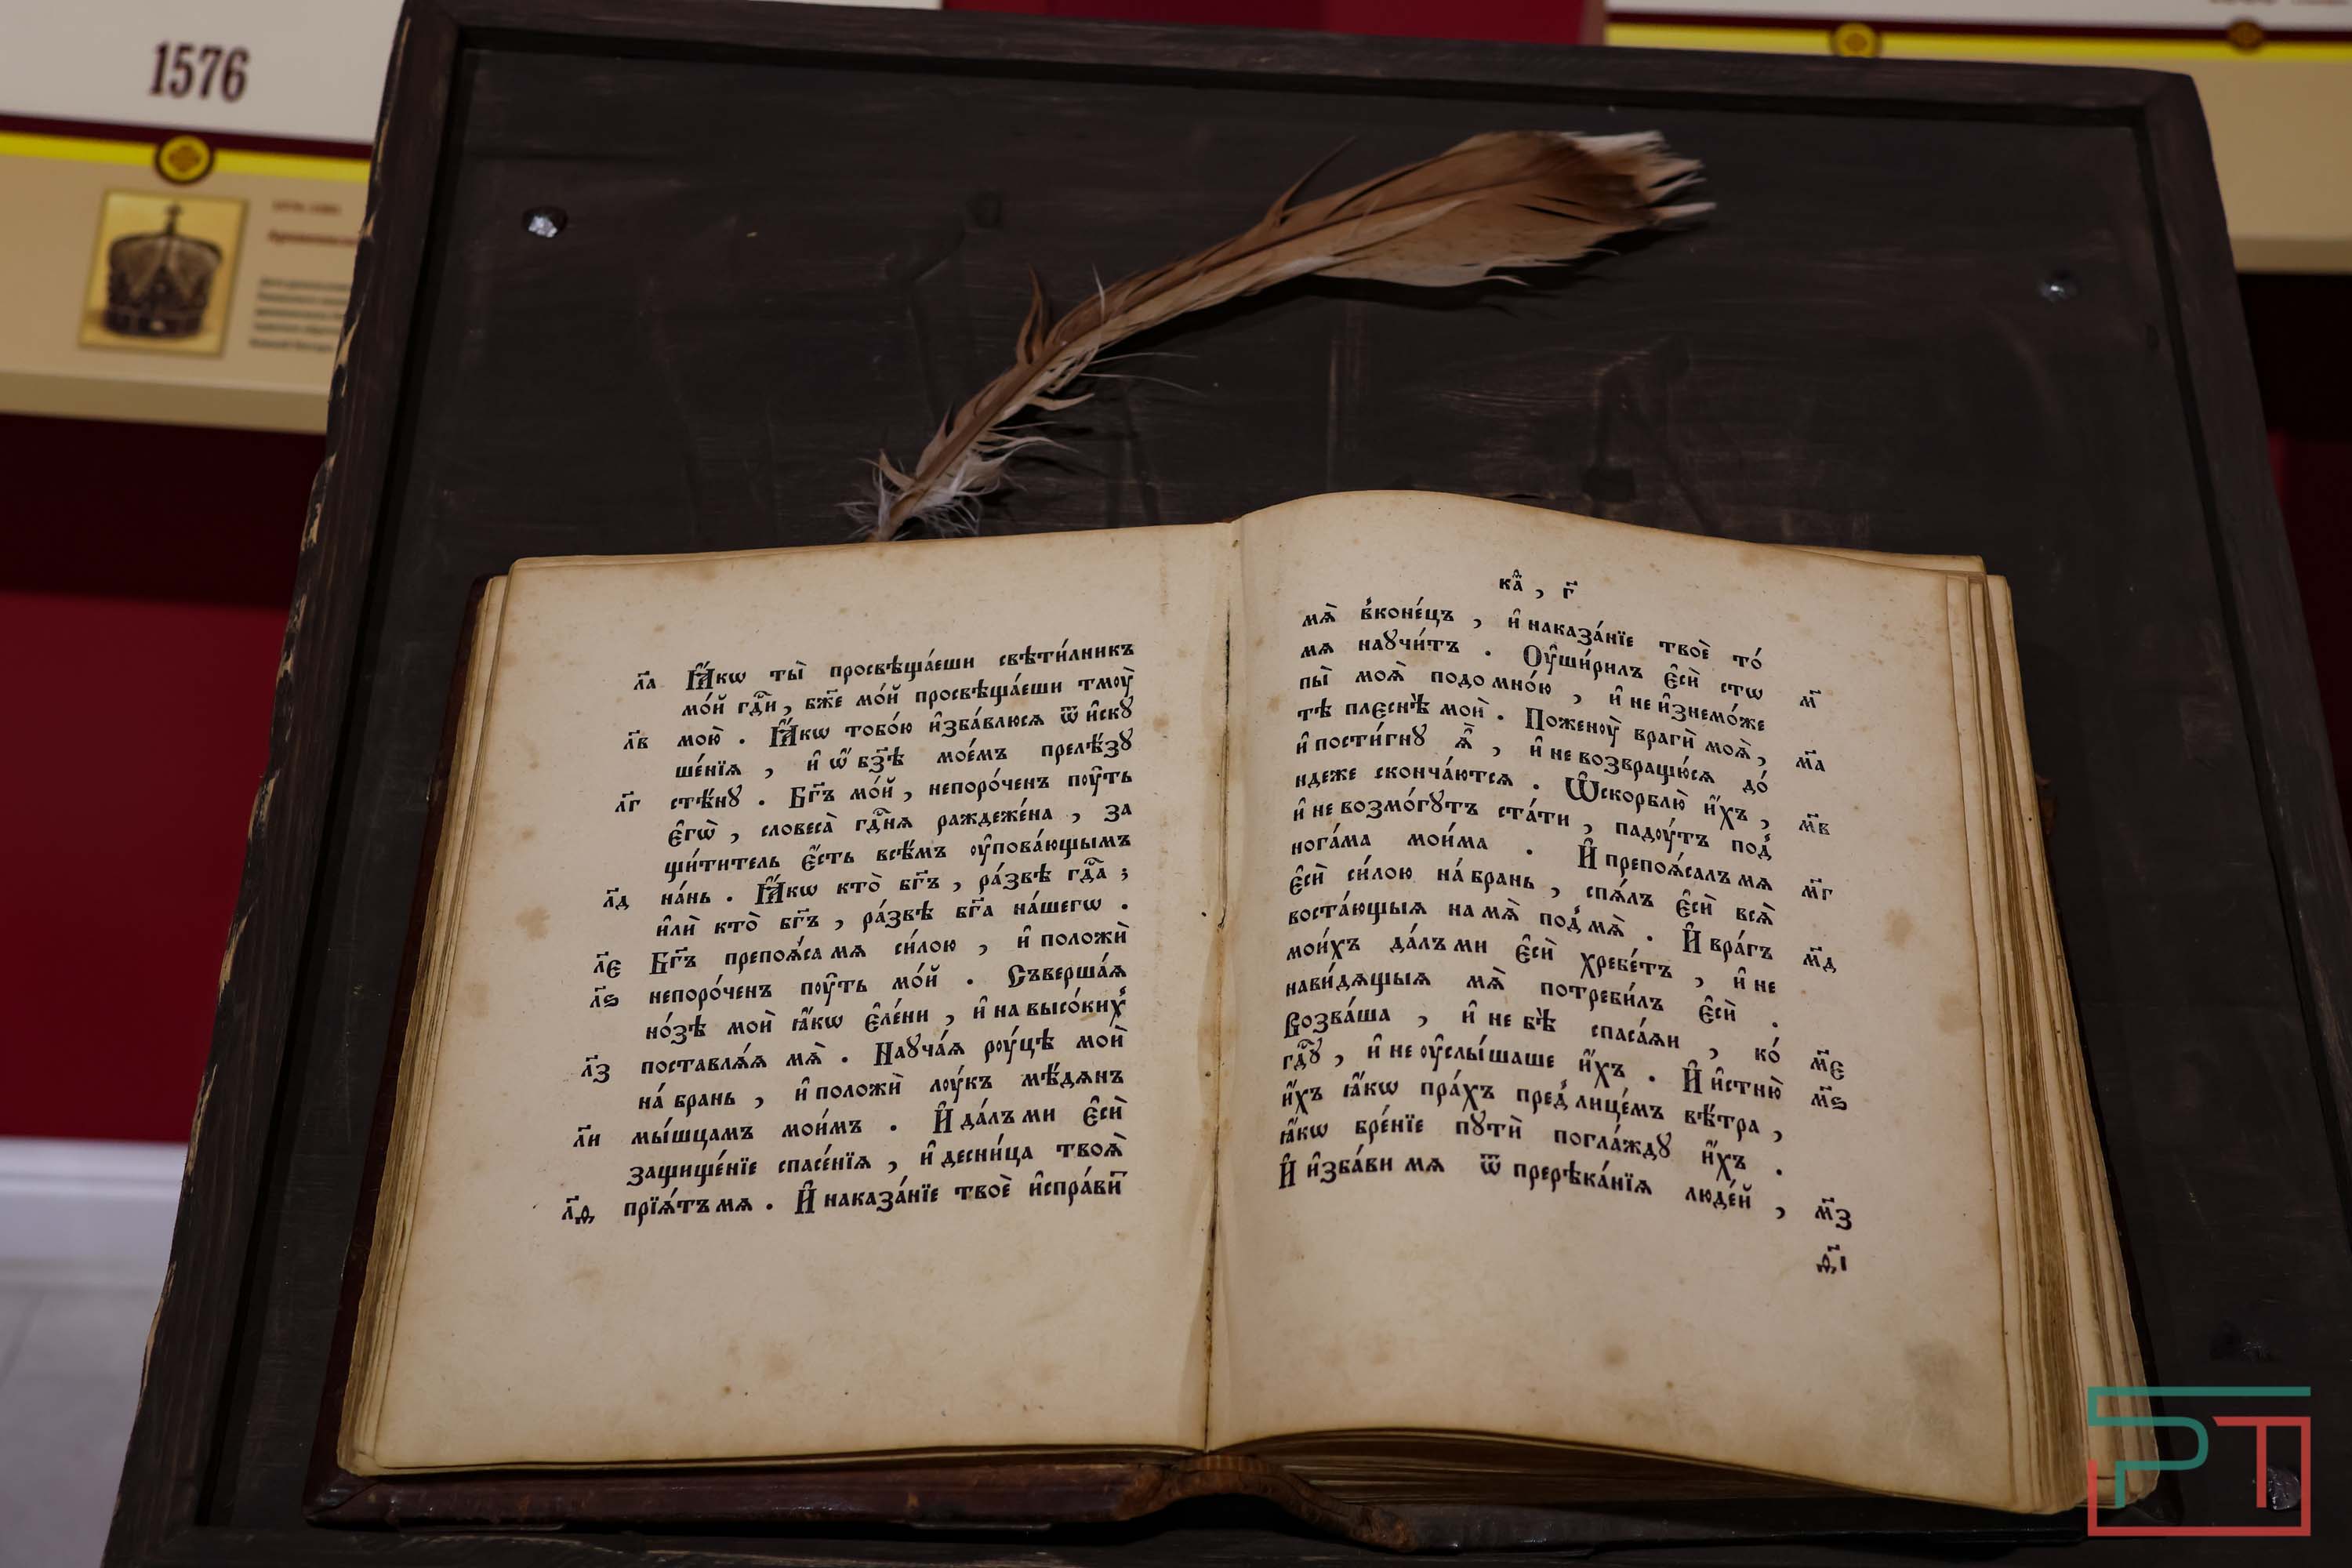 1576
л҃а Ꙗ҆́кѡ ты̀ просвѣща́еши свѣти́лникъ
мо́й гдⷭ҇и, бж҃е мо́й просвѣща́еши тмоу̀
л҃в мою̀ . Ꙗ҆́кѡ тобо́ю и҆зба́влюсѧ ѿ и҆скꙋ
ше́нїѧ , и҆ ѡ҆́ бз҃ѣ мое́мъ прелѣ́зꙋ
л҃г стѣ́нꙋ . Бг҃ъ мо́й , непоро́ченъ поу́ть
є҆гѡ̀ , словеса̀ гдⷭ҇нѧ раждеже́на , за
щи́титель є҆́сть всѣ́мъ оу҆пова́ющымъ
л҃д на́нь . Ꙗ҆́кѡ кто̀ бг҃ъ , ра́звѣ гдⷭ҇а ;
и҆лѝ кто̀ бг҃ъ , ра́звѣ бг҃а на́шегѡ .
л҃є Бг҃ъ препоѧ́са мѧ си́лою , и҆ положѝ
л҃ѕ непоро́ченъ поу́ть мо́й . Съверша́ѧ
но́зѣ моѝ ꙗ҆́кѡ є҆ле́ни , и҆ на высо́ких̾
л҃з поставлѧ́ѧ мѧ̀ . Наꙋча́ѧ роу́цѣ моѝ
на́ брань , и҆ положѝ лоу́къ мѣ́дѧнъ
л҃и мы́шцамъ мои́мъ . И҆ да́лъ ми є҆сѝ
защище́нїе спасе́нїѧ , и҆ десни́ца твоѧ̀
л҃ѳ прїѧ́тъ мѧ . И҆ наказа́нїе твоѐ и҆спра́ви
каⷴ , г҃
мѧ̀ в̾коне́цъ , и҆ наказа́нїе твоѐ то́
мѧ наꙋчи́тъ . Оу҆ши́рилъ є҆сѝ стѡ м҃
пы̀ моѧ̀ подо мно́ю , и҆ не и҆знемо́же
тѣ плєснѣ̀ моѝ . Поженоу̀ врагѝ моѧ̀ , м҃а
и҆ пости́гнꙋ ѧ҆̀ , и҆ не возвращю́сѧ до́
ндеже сконча́ютсѧ . Ѡ҆скорблю̀ и҆́хъ , м҃в
и҆ не возмо́гꙋтъ ста́ти , падоу́тъ под̾
нога́ма мои́ма . И҆ препоѧ́салъ мѧ м҃г
є҆сѝ си́лою на́ брань , спѧ́лъ є҆сѝ всѧ̀
воста́ющыѧ на мѧ̀ под̾ мѧ̀ . И҆ вра́гъ м҃д
мои́хъ да́лъ ми є҆сѝ хребе́тъ , и҆ не
нави́дѧщыѧ мѧ̀ потреби́лъ є҆сѝ .
Возва́ша , и҆ не бѣ̀ спаса́ѧи , ко́ м҃є
гдⷭ҇ꙋ , и҆ не оу҆слы́шаше и҆́хъ . И҆ и҆стню̀ м҃ѕ
и҆́хъ ꙗ҆́кѡ пра́хъ пред̾ лице́мъ вѣ́тра ,
ꙗ҆́кѡ бре́нїе пꙋтѝ погла́ждꙋ и҆́хъ .
И҆ и҆зба́ви мѧ ѿ пререка́нїѧ люде́й , м҃з
ѳ҃і
РТ